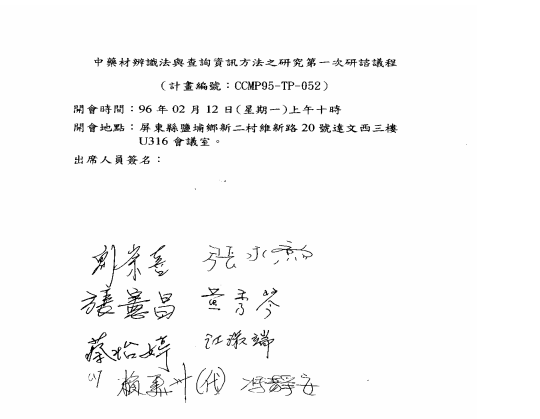 中藥材辨識法與查詢資訊方法之研究第一次研諮議程
(計畫編號：CCMP95-TP-052)
開會時間：96 年 02 月 12 日(星期一)上午十時
開會地點：屏東縣鹽埔鄉新二村維新路 20 號達文西三樓
U316 會議室。
出席人員簽名：
劉崇喜 張永勳
黃秀琴
蔡怡婷
(代) 馮靜安